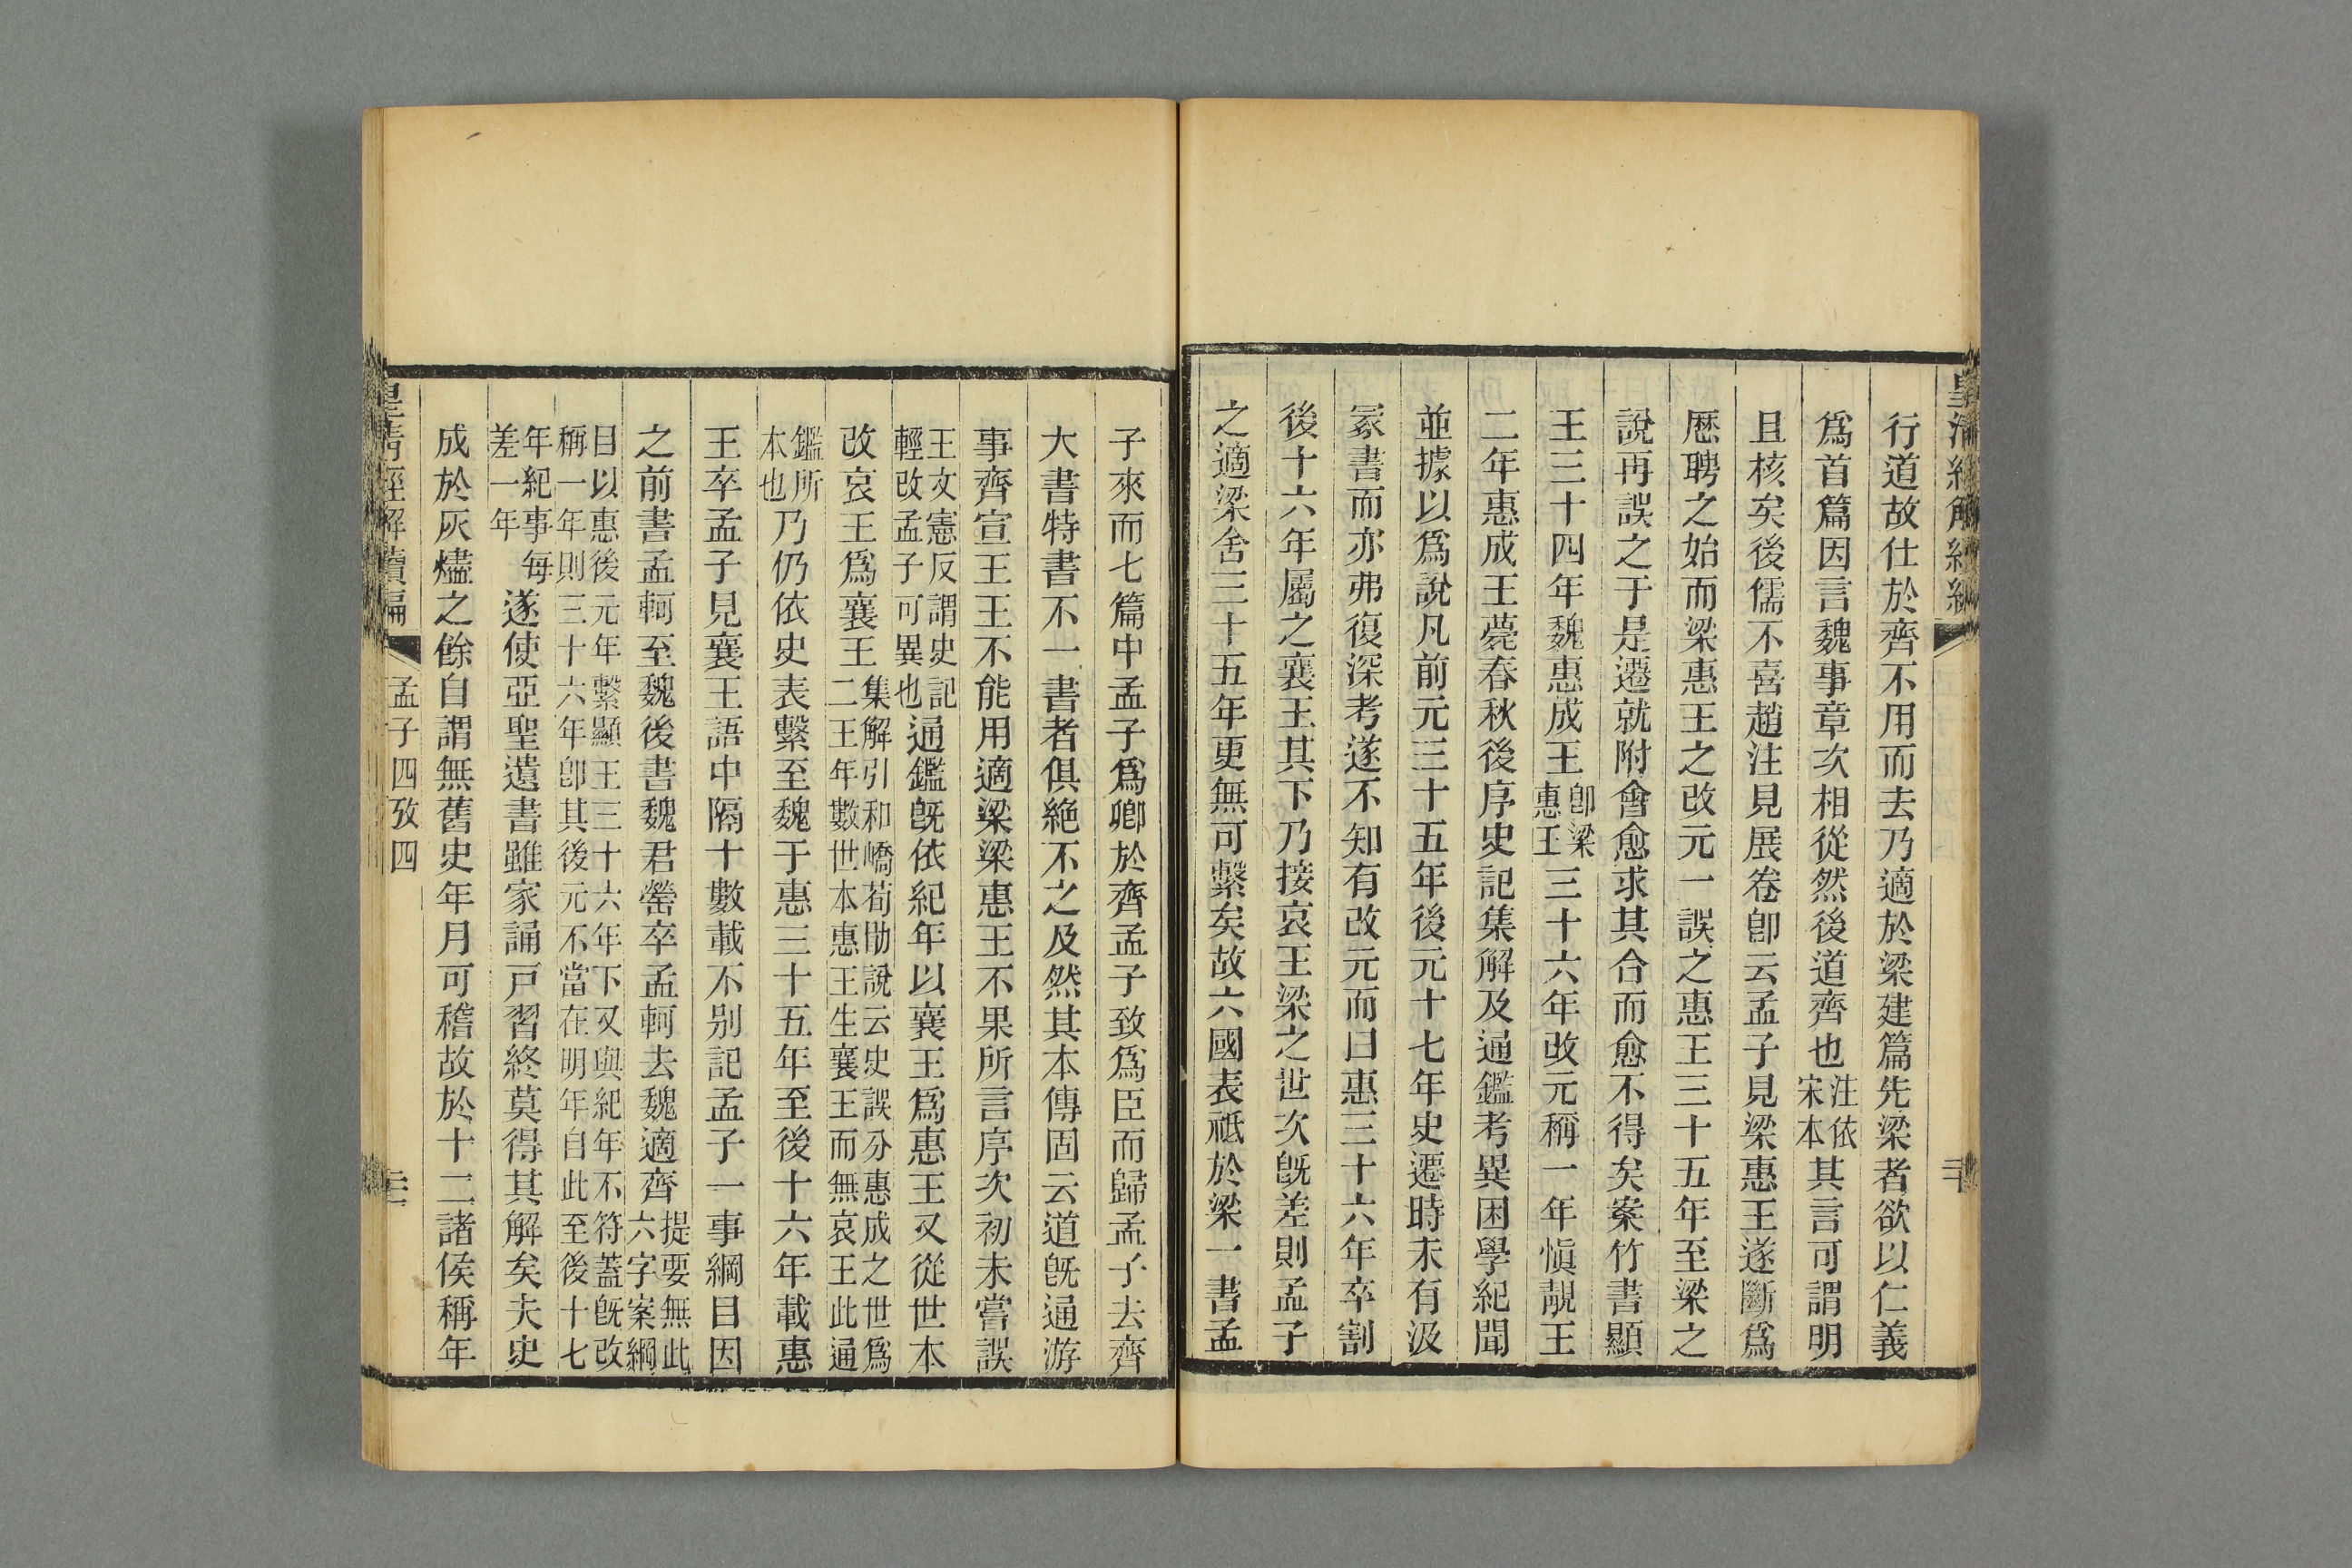 行道故仕於齊不用而去乃適於梁建篇先梁者欲以仁義
爲首篇因言魏事章次相從然後道齊也注依宋本其言可謂明
且核矣後儒不喜趙注見展卷卽云孟子見梁惠王遂斷爲
歷聘之始而梁惠王之改元一誤之惠王三十五年至梁之
說再誤之于是遷就附會愈求其合而愈不得矣案竹書顯
王三十四年魏惠成王卽梁惠王三十六年改元稱一年愼靚王
二年惠成王薨春秋後序史記集解及通鑑考異困學紀聞
並據以爲說凡前元三十五年後元十七年史遷時未有汲
冢書而亦弗復深考遂不知有改元而曰惠三十六年卒割
後十六年屬之襄王其下乃接哀王梁之世次旣差則孟子
之適梁舍三十五年更無可繫矣故六國表祇於梁一書孟
子來而七篇中孟子爲卿於齊孟子致爲臣而歸孟子去齊
大書特書不一書者俱絶不之及然其本傳固云道旣通游
事齊宣王王不能用適梁梁惠王不果所言序次初未嘗誤
王文憲反謂史記輕改孟子可異也通鑑旣依紀年以襄王爲惠王又從世本
改哀王爲襄王集解引和嶠荀勖說云史誤分惠成之世爲二王年數世本惠王生襄王而無哀王此通
鑑所本也乃仍依史表繫至魏于惠三十五年至後十六年載惠
王卒孟子見襄王語中隔十數載不别記孟子一事綱目因
之前書孟軻至魏後書魏君罃卒孟軻去魏適齊提要無此六字案綱
目以惠後元年繫顯王三十六年下又與紀年不符蓋旣改稱一年則三十六年卽其後元不當在明年自此至後十七
年紀事每差一年遂使亞聖遺書雖家誦戸習終莫得其解矣夫史
成於灰燼之餘自謂無舊史年月可稽故於十二諸侯稱年
皇清經解續編
孟子四攷四